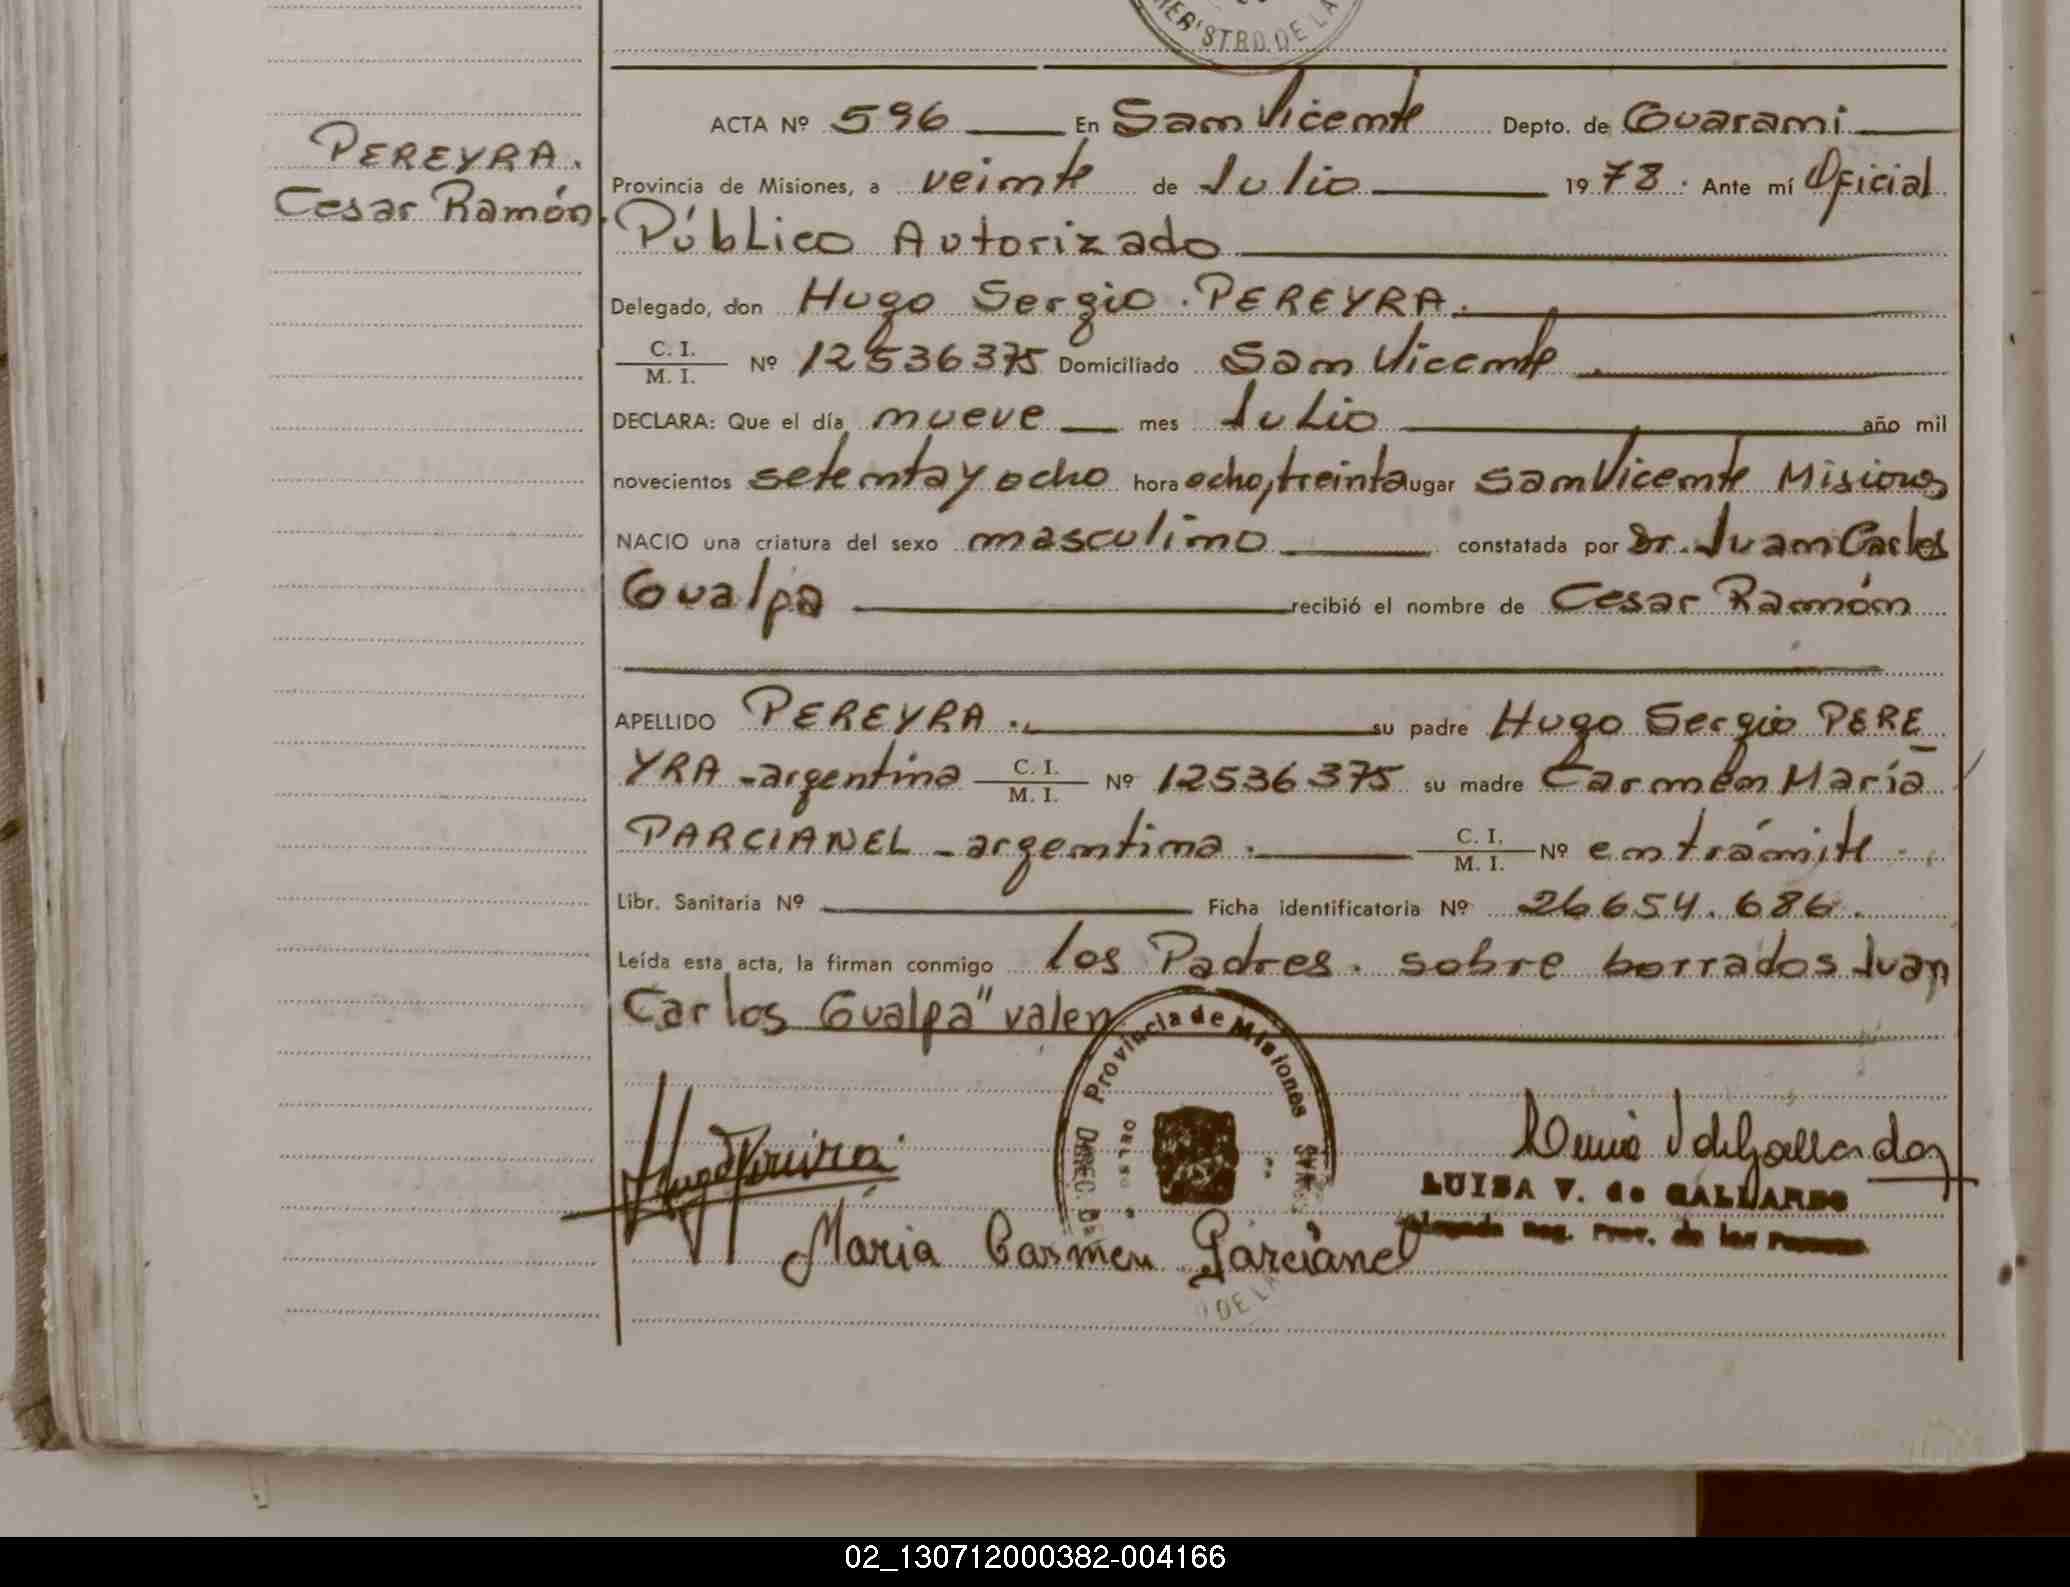 PEREYRA.
Cesar Ramón.
ACTA Nº 596 En San Vicente Depto. de Guarani
Provincia de Misiones, a veinte de Julio 1978. Ante mí Oficial
Público Autorizado
Delegado, don Hugo Sergio. PEREYRA.
C. I.
M. I. Nº 12536375 Domiciliado San Vicente.
DECLARA: Que el día nueve mes Julio año mil
novecientos setenta y ocho hora ocho, treinta lugar San Vicente Misiones
NACIO una criatura del sexo masculino constatada por Dr. Juan Carlos
Gualpa recibió el nombre de Cesar Ramón
APELLIDO PEREYRA. su padre Hugo Sergio PERE
YRA - argentina C. I. M. I. Nº 12536375 su madre Carmen María
PARCIANEL - argentina. C. I. M. I. Nº en trámite.
Libr. Sanitaria Nº Ficha identificatoria Nº 26654.686.
Leída esta acta, la firman conmigo los Padres. sobre borrados Juan
Carlos Gualpa" valen
Provincia de Misiones
LUISA V. de GALLARDO
Reg. Prov. de las Personas
Maria Carmen Parcianel
DE LA
02_130712000382-004166